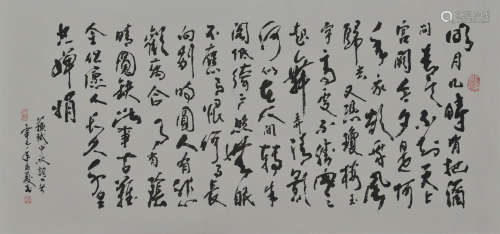 明月几時有把酒
问青天不知天上
宫阙今夕是何
年我欲乘风
歸去又恐瓊樓玉
宇高處不勝寒
起舞弄清影
何似在人间轉朱
阁低绮户照無眠
不應有恨何事長
向别時圆人有悲
歡離合月有陰
晴圆缺此事古難
全但願人長久千里
共嬋娟
蘇軾中秋詞